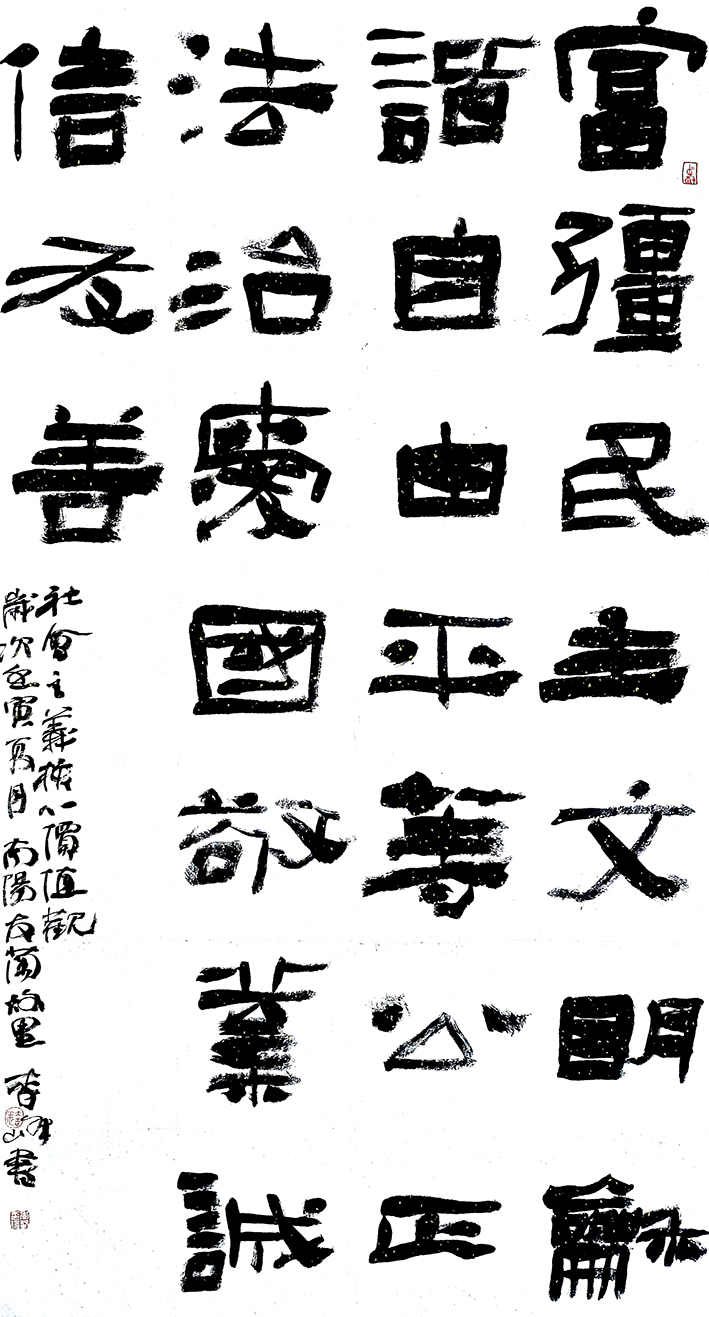 富彊民主文明龢
諧自由平等公正
法治愛國敬業誠
信友善
社會主義核心價值觀
歲次壬寅夏月南陽友蘭故里李山書